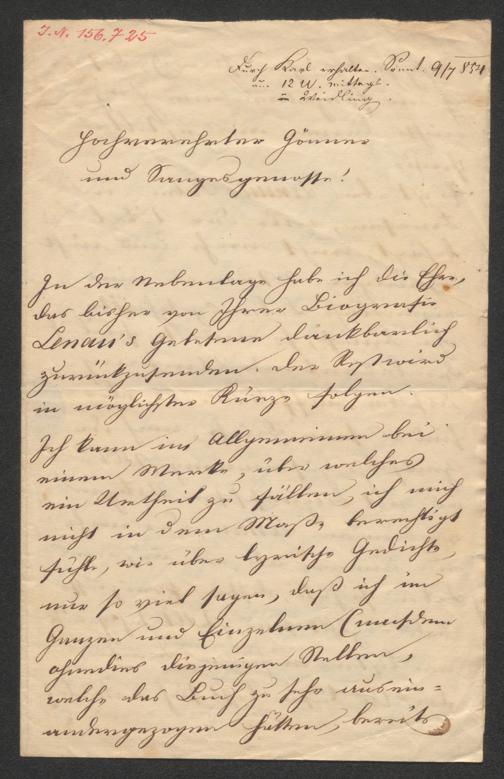 I.N. 156.725
Durch Karl erhalten. Sonnt. 9/7 854
um 12 U. mittags.
in Weidling.
Hochverehrter Gönner
und Sangesgenosse!
In der Nebenlage habe ich die Ehre,
das bisher von Ihrer Biografie
Lenau's Gelesene dankbarlich
zurückzusenden. Der Rest wird
in möglichster Kürze folgen.
Ich kann im Allgemeinen bei
einem Werke, über welches
ein Urtheil zu fällen, ich mich
nicht in dem Maße berechtigt
fühle, wie über lyrische Gedichte,
nur so viel sagen, daß ich im
Ganzen und Einzelnen (nachdem
ohnedies diejenigen Stellen,
welche das Buch zu sehr ausein=
andergezogen hätten, bereits